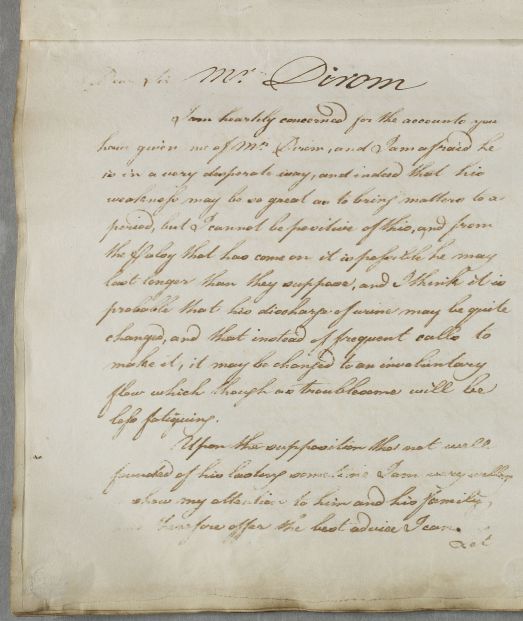 Dear Sir Mr. Dirom
I am heartily concerned for the accounts you
have given me of Mr. Dirom, and I am afraid he
is in a very desperate way, and indeed that his
weakness may be so great as to bring matters to a
period, but I cannot be positive of this, and from
the Palsy that has come on it is possible he may
last longer than they suppose, and I think it is
probable that his discharge of urine may be quite
changed, and that instead of frequent calls to
make it, it may be changed to an involuntary
flow which though as troublesome will be
less fatiguing.
Upon the supposition tho not well
founded of his lasting some time I am very willing
show my attention to him and his Family,
therefore offer the best advice I can.